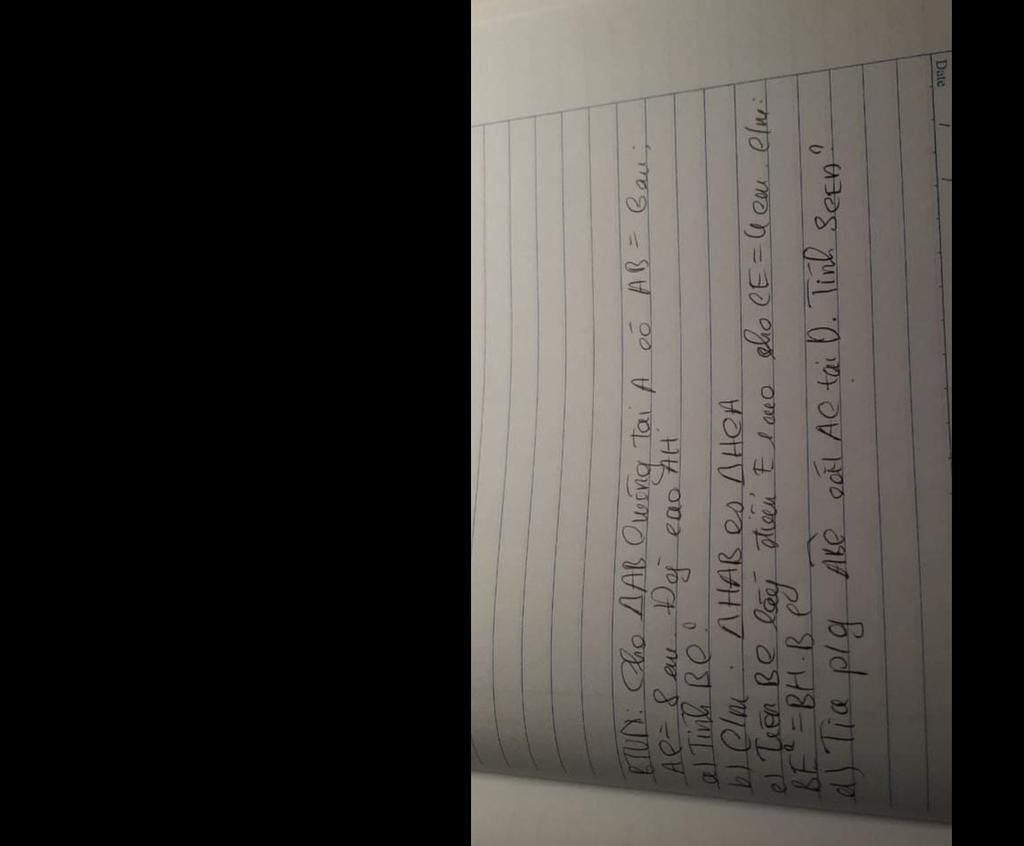 BTVN: Cho ΔABC vuông tại A có AB = 6cm;
AC = 8cm. Đg cao AH
a) Tính BC?
b) C/m: ΔHAB ∽ ΔHCA
c) Trên BC lấy điểm E sao cho CE = 4cm. C/m:
BE² = BH.BC
d) Tia p/g ABC cắt AC tại D. Tính SCED?
Date / /